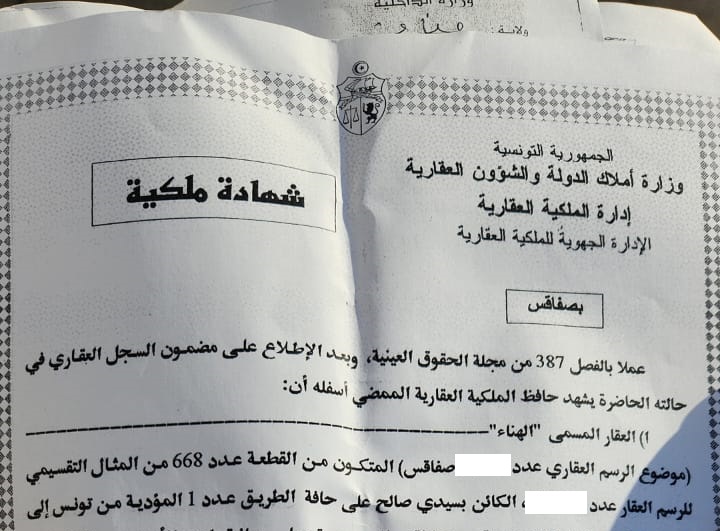 وزارة الداخلية
ولاية:
الجمهورية التونسية
وزارة أملاك الدولة والشؤون العقارية
إدارة الملكية العقارية
الإدارة الجهوية للملكية العقارية
شهادة ملكية
بصفاقس
عملا بالفصل 387 من مجلة الحقوق العينية، وبعد الإطلاع على مضمون السجل العقاري في
حالته الحاضرة يشهد حافظ الملكية العقارية الممضي أسفله أن:
ا) العقار المسمى "الهناء"
(موضوع الرسم العقاري عدد صفاقس) المتكون من القطعة عدد 668 من المثال التقسيمي
للرسم العقار عدد ، الكائن بسيدي صالح على حافة الطريق عدد 1 المؤدية من تونس إلى